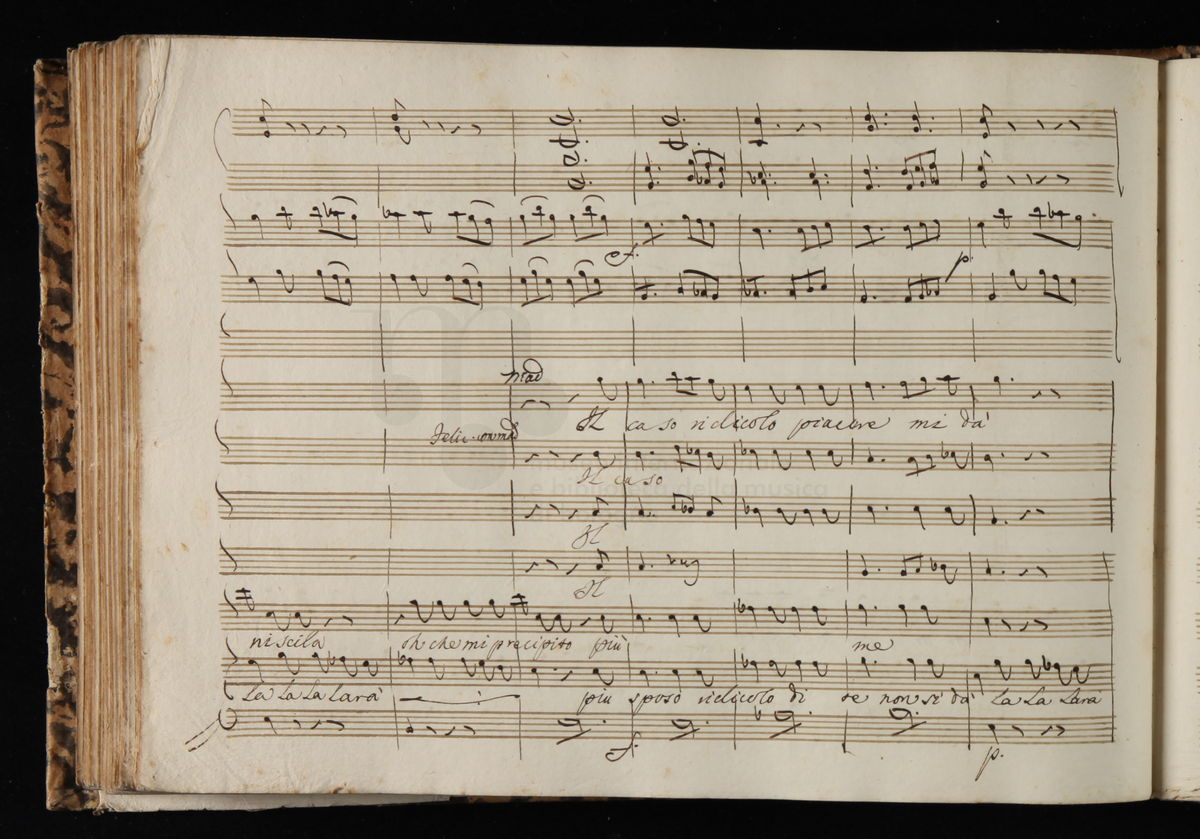 Il caso ridicolo piacere mi dà
Il caso
Il
Il
oh che mi precipito più
me
La La La Larà
più sposo ridicolo di se non si dà La La Lara
f.
p.
e biblioteca della musica